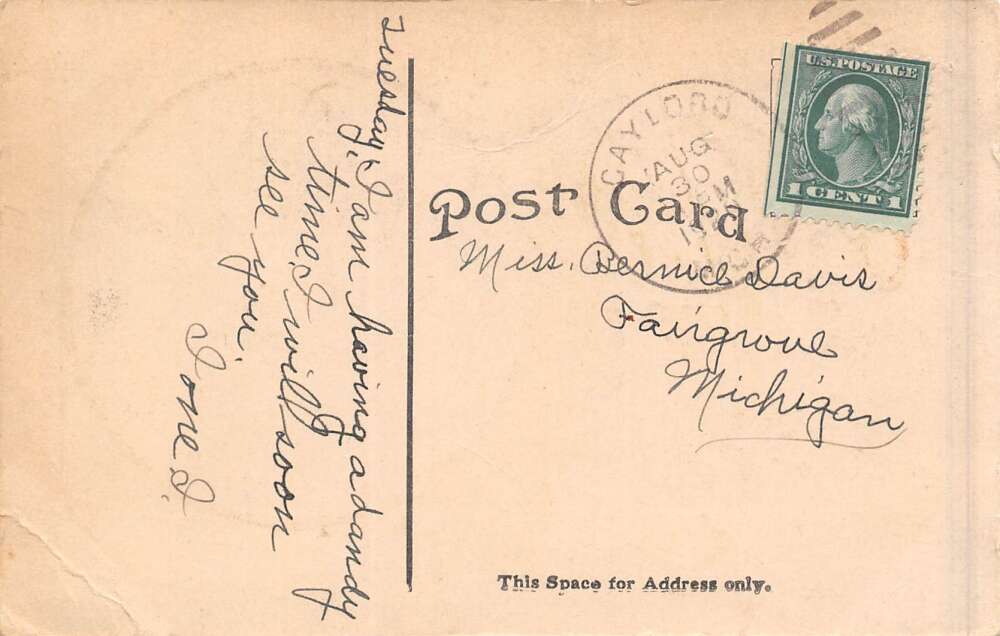 Tuesday, I am having a dandy
time. I will soon
see you.
Ione I.
Post Card
GAYLORD
AUG
30
M
U.S. POSTAGE
1 CENT 1
Miss. Bernice Davis
Fairgrove
Michigan
This Space for Address only.